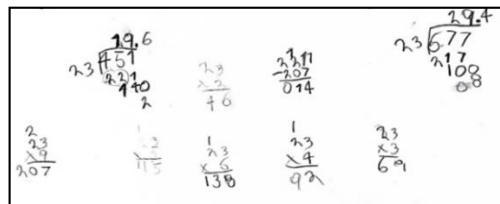 19.6
23 451
221
140
2
23
x 2
46
2211
-207
014
29.4
23 677
217
100
08
2
23
x9
207
1
23
x5
115
1
23
x 6
138
1
23
x4
92
23
x3
69